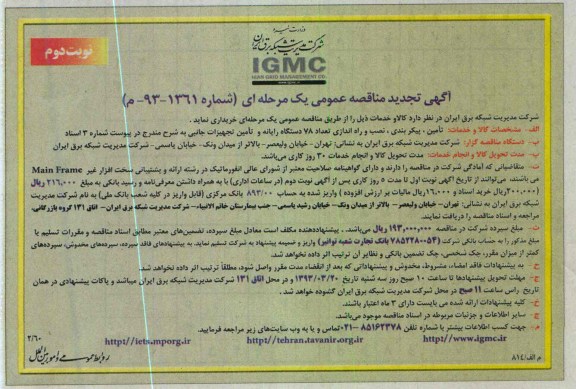 وزارت نیرو
نوبت دوم
شرکت مدیریت شبکه برق ایران
IGMC
IRAN GRID MANAGEMENT CO.
آگهی تجدید مناقصه عمومی یک مرحله ای (شماره ۱۳۶۱-۹۳- م)
شرکت مدیریت شبکه برق ایران در نظر دارد کالا و خدمات ذیل را از طریق مناقصه عمومی یک مرحله‌ای خریداری نماید .
الف- مشخصات کالا و خدمات: تأمین - پیکر بندی، نصب و راه اندازی تعداد ۷۸ دستگاه رایانه و تأمین تجهیزات جانبی به شرح مندرج در پیوست شماره ۳ اسناد
ب- دستگاه مناقصه گزار: شرکت مدیریت شبکه برق ایران به نشانی: تهران- خیابان ولیعصر - بالاتر از میدان ونک- خیابان یاسمی - شرکت مدیریت شبکه برق ایران
پ- مدت تحویل کالا و انجام خدمات: مدت تحویل کالا و انجام خدمات ۳۰ روز کاری می‌باشد.
ت- متقاضیانی که آمادگی شرکت در مناقصه را دارند و دارای گواهینامه صلاحیت معتبر از شورای عالی انفورماتیک در رشته ارائه و پشتیبانی سخت افزار غیر Main Frame
می باشند، می‌توانند از تاریخ آگهی نوبت اول تا مدت ۵ روز کاری پس از آگهی نوبت دوم (در ساعات اداری) با به همراه داشتن معرفی‌نامه و رسید بانکی به مبلغ ۲۱۶,۰۰۰ ریال
(۲۰۰,۰۰۰ ریال خرید اسناد و ۱۶,۰۰۰ ریال مالیات بر ارزش افزوده ) واریز شده به حساب ۸۹۳/۰۰ بانک مرکزی (قابل واریز در کلیه شعب بانک ملی) به نام شرکت مدیریت
شبکه برق ایران به نشانی: تهران- خیابان ولیعصر- بالاتر از میدان ونک - خیابان رشید یاسمی- جنب بیمارستان خاتم الانبیاء - شرکت مدیریت شبکه برق ایران- اتاق ۱۳۱ گروه بازرگانی،
مراجعه و اسناد مناقصه را دریافت نمایند.
ث- مبلغ سپرده شرکت در مناقصه ۱۹۳,۰۰۰,۰۰۰ ریال می‌باشد . پیشنهاددهنده مکلف است معادل مبلغ سپرده، تضمین‌های معتبر مطابق اسناد مناقصه و مقررات تسلیم یا
مبلغ مذکور را به حساب بانکی شرکت (۷۸۵۲۲۸۰۰۵۴ بانک تجارت شعبه توانیر) واریز و ضمیمه پیشنهاد به شرکت تسلیم نماید. به پیشنهادهای فاقد سپرده، سپرده‌های مخدوش، سپرده‌های
کمتر از میزان مقرر، چک شخصی، چک تضمین بانکی و نظایر آن ترتیب اثر داده نخواهد شد.
ج - به پیشنهادات فاقد امضاء، مشروط، مخدوش و پیشنهاداتی که بعد از انقضاء مدت مقرر واصل شود، مطلقاً ترتیب اثر داده نخواهد شد.
ح- مهلت تحویل پیشنهادها تا ساعت ۱۰ صبح روز سه شنبه تاریخ ۱۳۹۳/۰۳/۲۰ و در محل اتاق ۱۳۱ شرکت مدیریت شبکه برق ایران میباشد و پاکات پیشنهادی در همان
تاریخ راس ساعت ۱۱ صبح در محل شرکت مدیریت شبکه برق ایران گشوده خواهد شد .
خ- کلیه پیشنهادات ارائه شده می بایست دارای ۳ ماه اعتبار باشند.
د- سایر اطلاعات و جزئیات مربوطه در اسناد مناقصه موجود می‌باشد.
م- جهت کسب اطلاعات بیشتر با شماره تلفن ۸۵۱۶۲۳۷۸-۰۲۱تماس و یا به وب سایت‌های زیر مراجعه فرمایید.
http//www.igmc.ir http//tehran.tavanir.org.ir http//iets.mporg.ir
۲/۶۰
م الف/۸۱۴
روابط عمومی و امور بین الملل